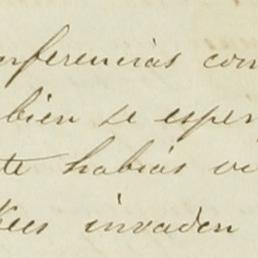 nferencias con
bien se esper
te habias ve
kees invaden